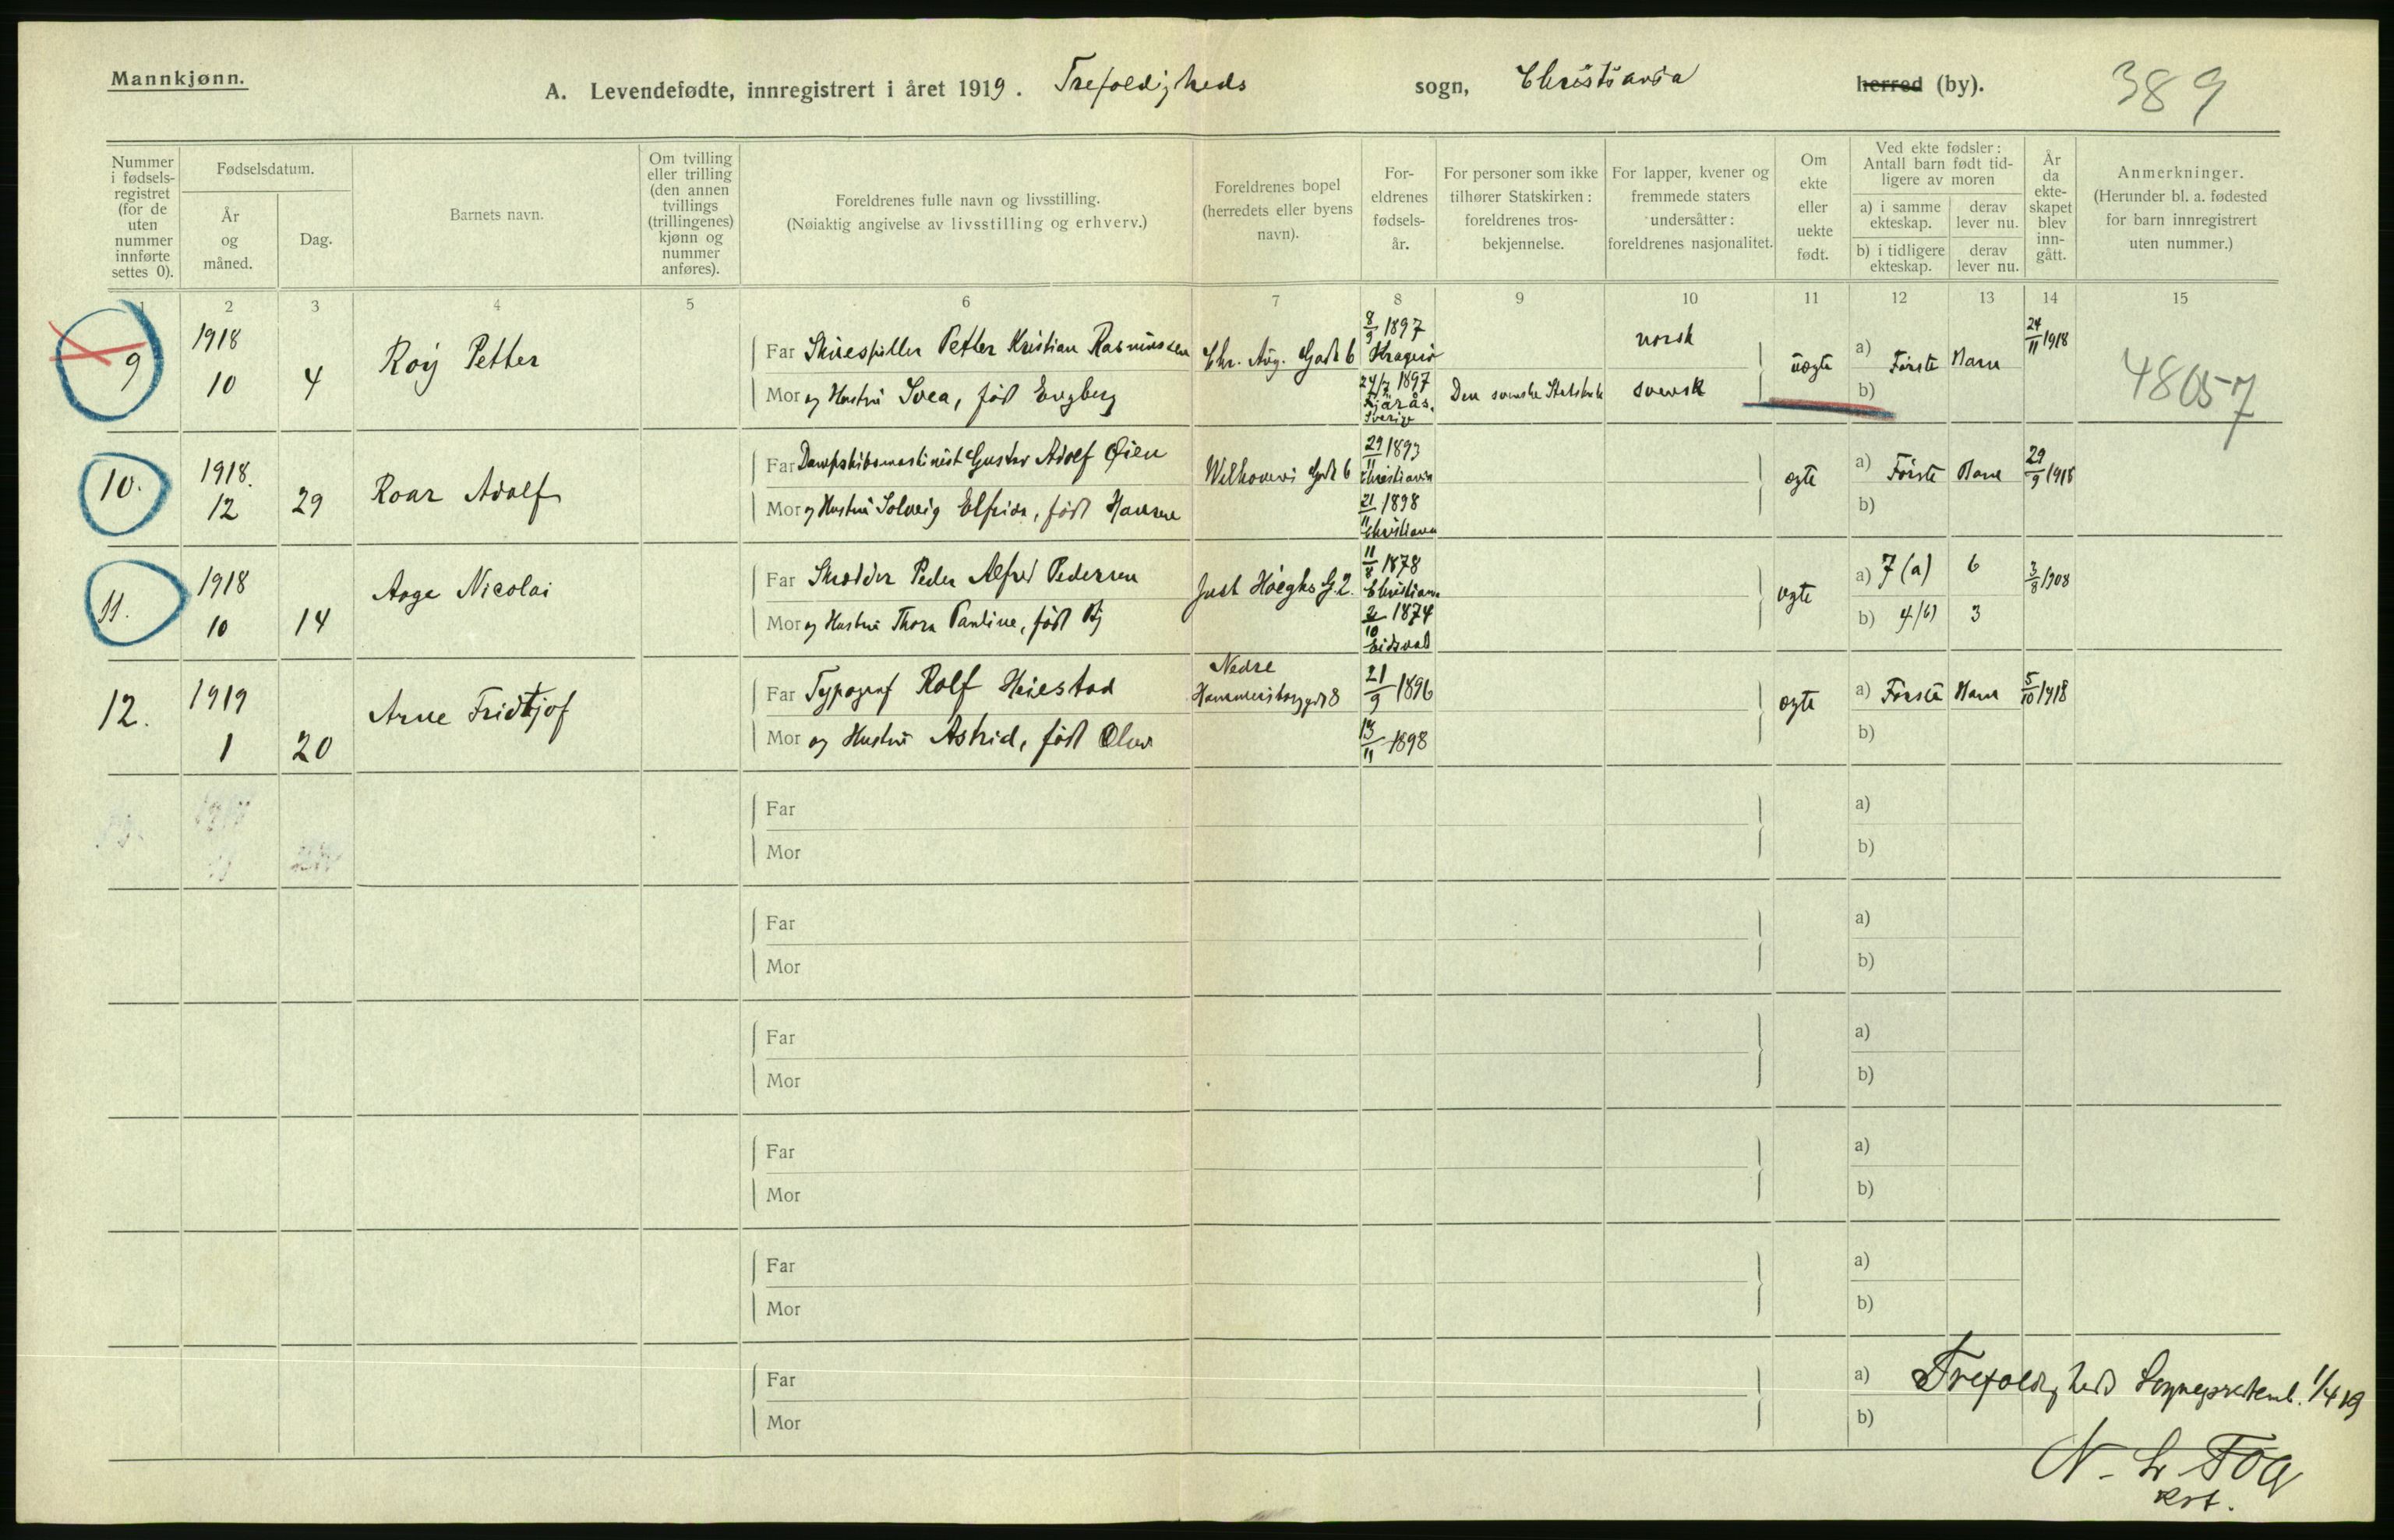 Mannkjønn.
A. Levendefødte, innregistrert i året 1919. Trefoldigheds sogn, Christiania herred (by). 389
Nummer i fødsels-registret (for de uten nummer innførte settes 0).
Fødselsdatum.
År og måned.
Dag.
Barnets navn.
Om tvilling eller trilling (den annen tvillings (trillingenes) kjønn og nummer anføres).
Foreldrenes fulle navn og livsstilling.
(Nøiaktig angivelse av livsstilling og erhverv.)
Foreldrenes bopel (herredets eller byens navn).
For-eldrenes fødsels-år.
For personer som ikke tilhører Statskirken: foreldrenes tros-bekjennelse.
For lapper, kvener og fremmede staters undersåtter: foreldrenes nasjonalitet.
Om ekte eller uekte født.
Ved ekte fødsler: Antall barn født tid-ligere av moren
a) i samme ekteskap.
derav lever nu.
b) i tidligere ekteskap.
derav lever nu.
År da ekte-skapet blev inn-gått.
Anmerkninger.
(Herunder bl. a. fødested for barn innregistrert uten nummer.)
1 2 3 4 5 6 7 8 9 10 11 12 13 14 15
9 1918 10 4 Roy Petter
Far Skuespiller Petter Kristian Rasmussen Chr. Aug. Gade 6 8/9 1897 Kragerø norsk
Mor og Hustru Svea, født Engberg 24/7 1897 Fjärås, Sverig Den svenske Statskirke svensk
uægte a) Første Barn 24/11 1918 48057
b)
10. 1918. 12 29 Roar Adolf
Far Dampskibsmaskinist Gustav Adolf Øien Gade 6 29/11 1893 Christiania
Mor og Hustru Solveig Elfrida, født Hansen 21/11 1898 Christiania
ægte a) Første Barn 29/9 1918
b)
11. 1918 10 14 Aage Nicolai
Far Skrædder Peder Alfred Pedersen Just Høeghs G. 2. 11/8 1878 Christiania
Mor og Hustru Thora Pauline, født 2/10 1874 Eidsvold
ægte a) 7 (a) 6 3/8 1908
b) 4 (b) 3
12. 1919 1 20 Arne Fridtjof
Far Typograf Rolf Heiestad Nedre Hammersborggd 8 21/9 1896
Mor og Hustru Astrid, født Olsen 13/11 1898
ægte a) Første Barn 5/10 1918
b)
Far a)
Mor b)
Far a)
Mor b)
Far a)
Mor b)
Far a)
Mor b)
Far a)
Mor b)
Far a)
Mor b)
Trefoldigheds Sogneprestemb. 1/4 19
N. Fog